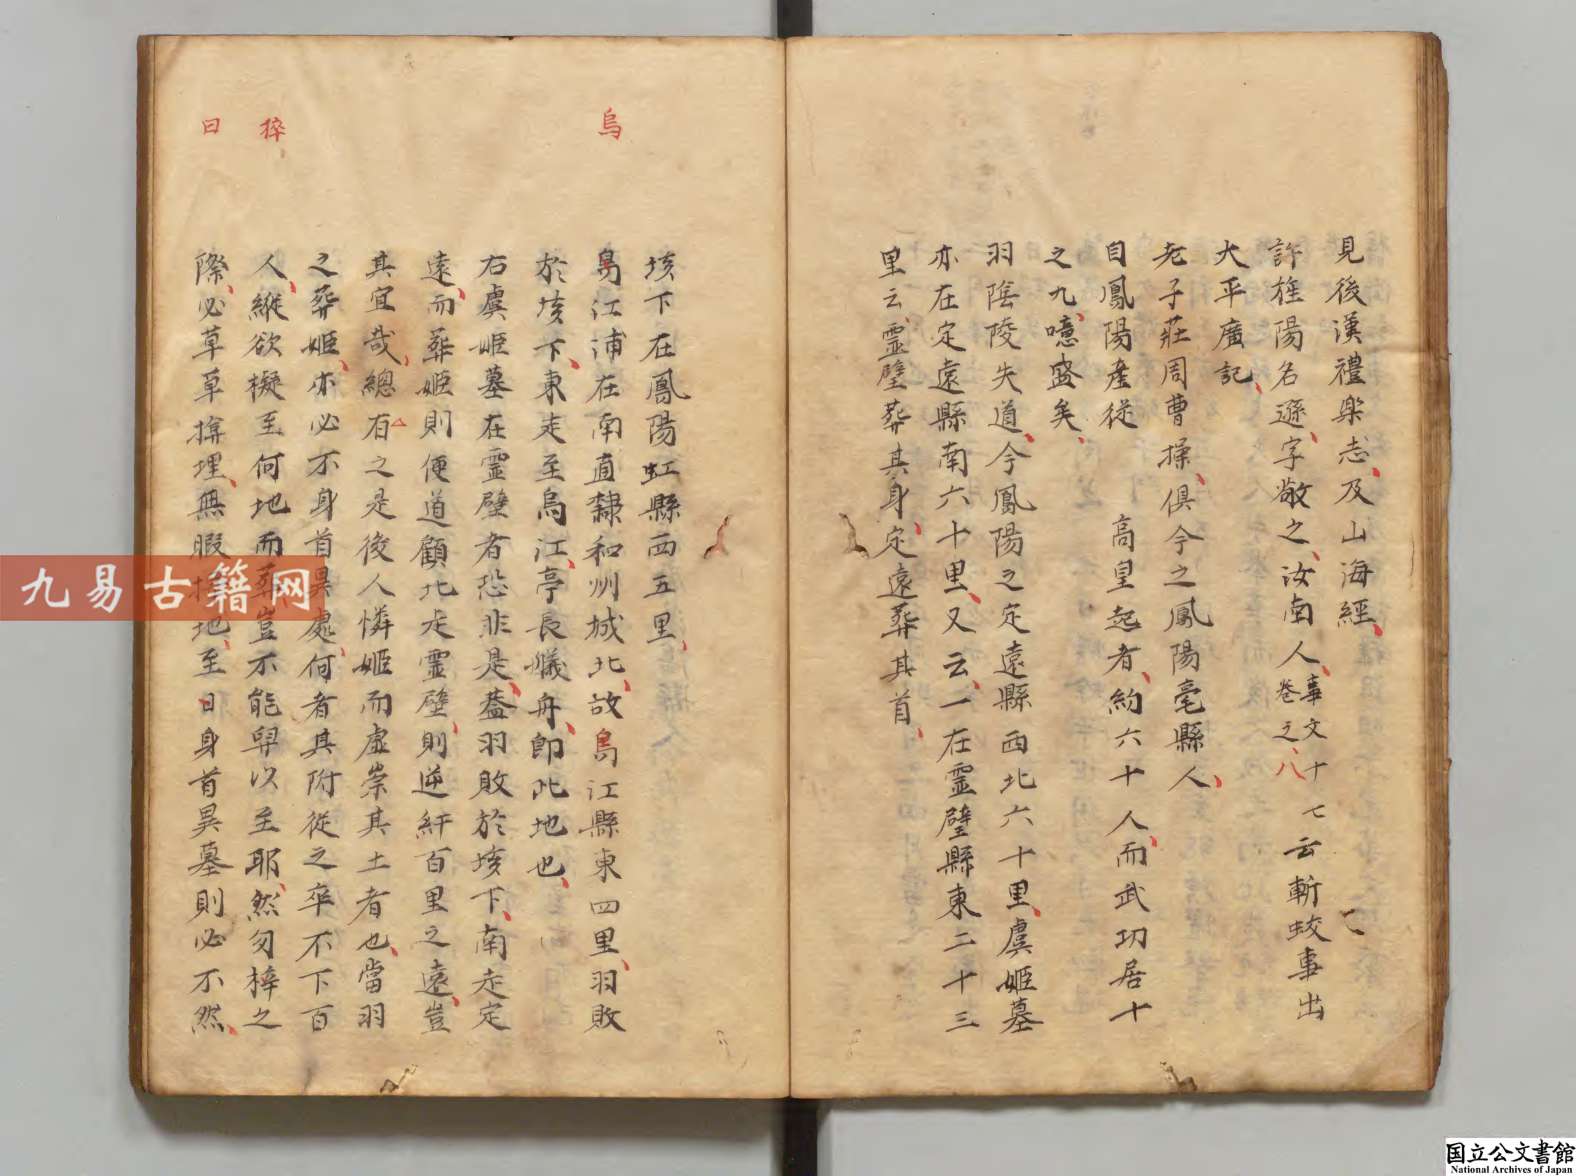 見後漢禮樂志及山海經
許旌陽名遜字敬之汝南人事文十七卷之八云斬蛟事出
大平廣記
老子莊周曹操俱今之鳳陽亳縣人
自鳳陽産從 高皇起者約六十人而武功居十
之九噫盛矣
羽陰陵失道今鳳陽之定遠縣西北六十里虞姬墓
亦在定遠縣南六十里又云一在霊璧縣東二十三
里云霊璧葬其身定遠葬其首
烏
垓下在鳳陽虹縣西五里
烏江浦在南直隸和州城北故烏江縣東四里羽敗
於垓下東走至烏江亭長艤舟即此地也
右虞姬墓在霊壁者恐非是葢羽敗於垓下南走定
遠而葬姬則便道顧北走霊壁則逆紆百里之遠豈
其宜哉總有之是後人憐姬而虛崇其土者也當羽
之葬姬亦必不身首異處何者其附從之卒不下百
人縱欲擬至何地而葬豈不能舁以至耶然匆猝之
際必草草揜埋無暇擇地至日身首異墓則必不然
猝
日
九易古籍网
国立公文書館
National Archives of Japan